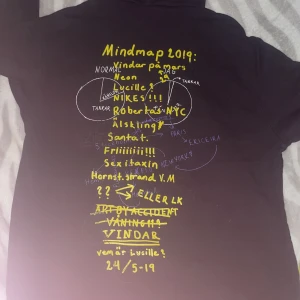 Mindmap 2019:
Vindar på mars
NORMAL
Neon
Lucille?
TANKAR
NIKES!!!
TANKAR
Robertas NYC
Älskling
Santa t.
Friiiiiiii!!!
Sex i taxin
Hornst. strand V.M
?? ELLER LK
ART BY ACCIDENT
VÅNING
VINDAR
vem är Lucille?
24/5-19